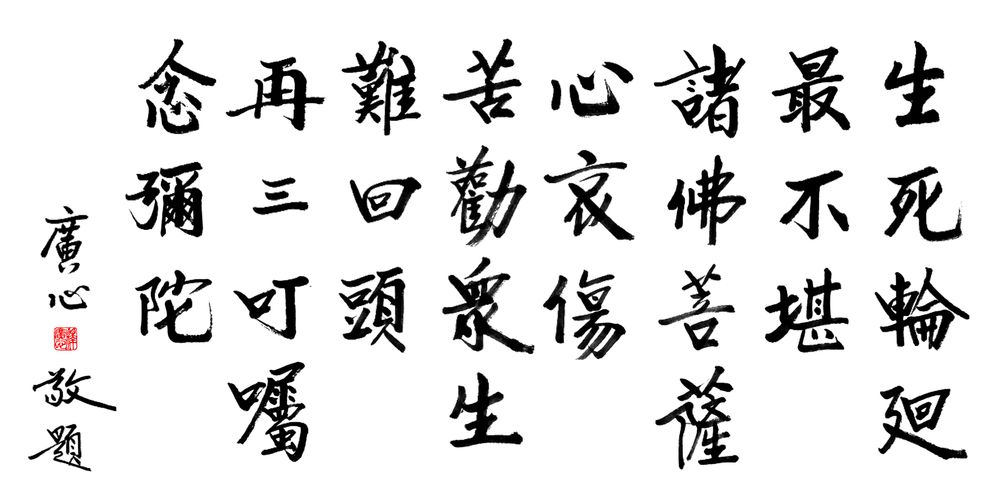 生死輪廻
最不堪
諸佛菩薩
心哀傷
苦勸衆生
難回頭
再三叮囑
念彌陀
廣心
敬題